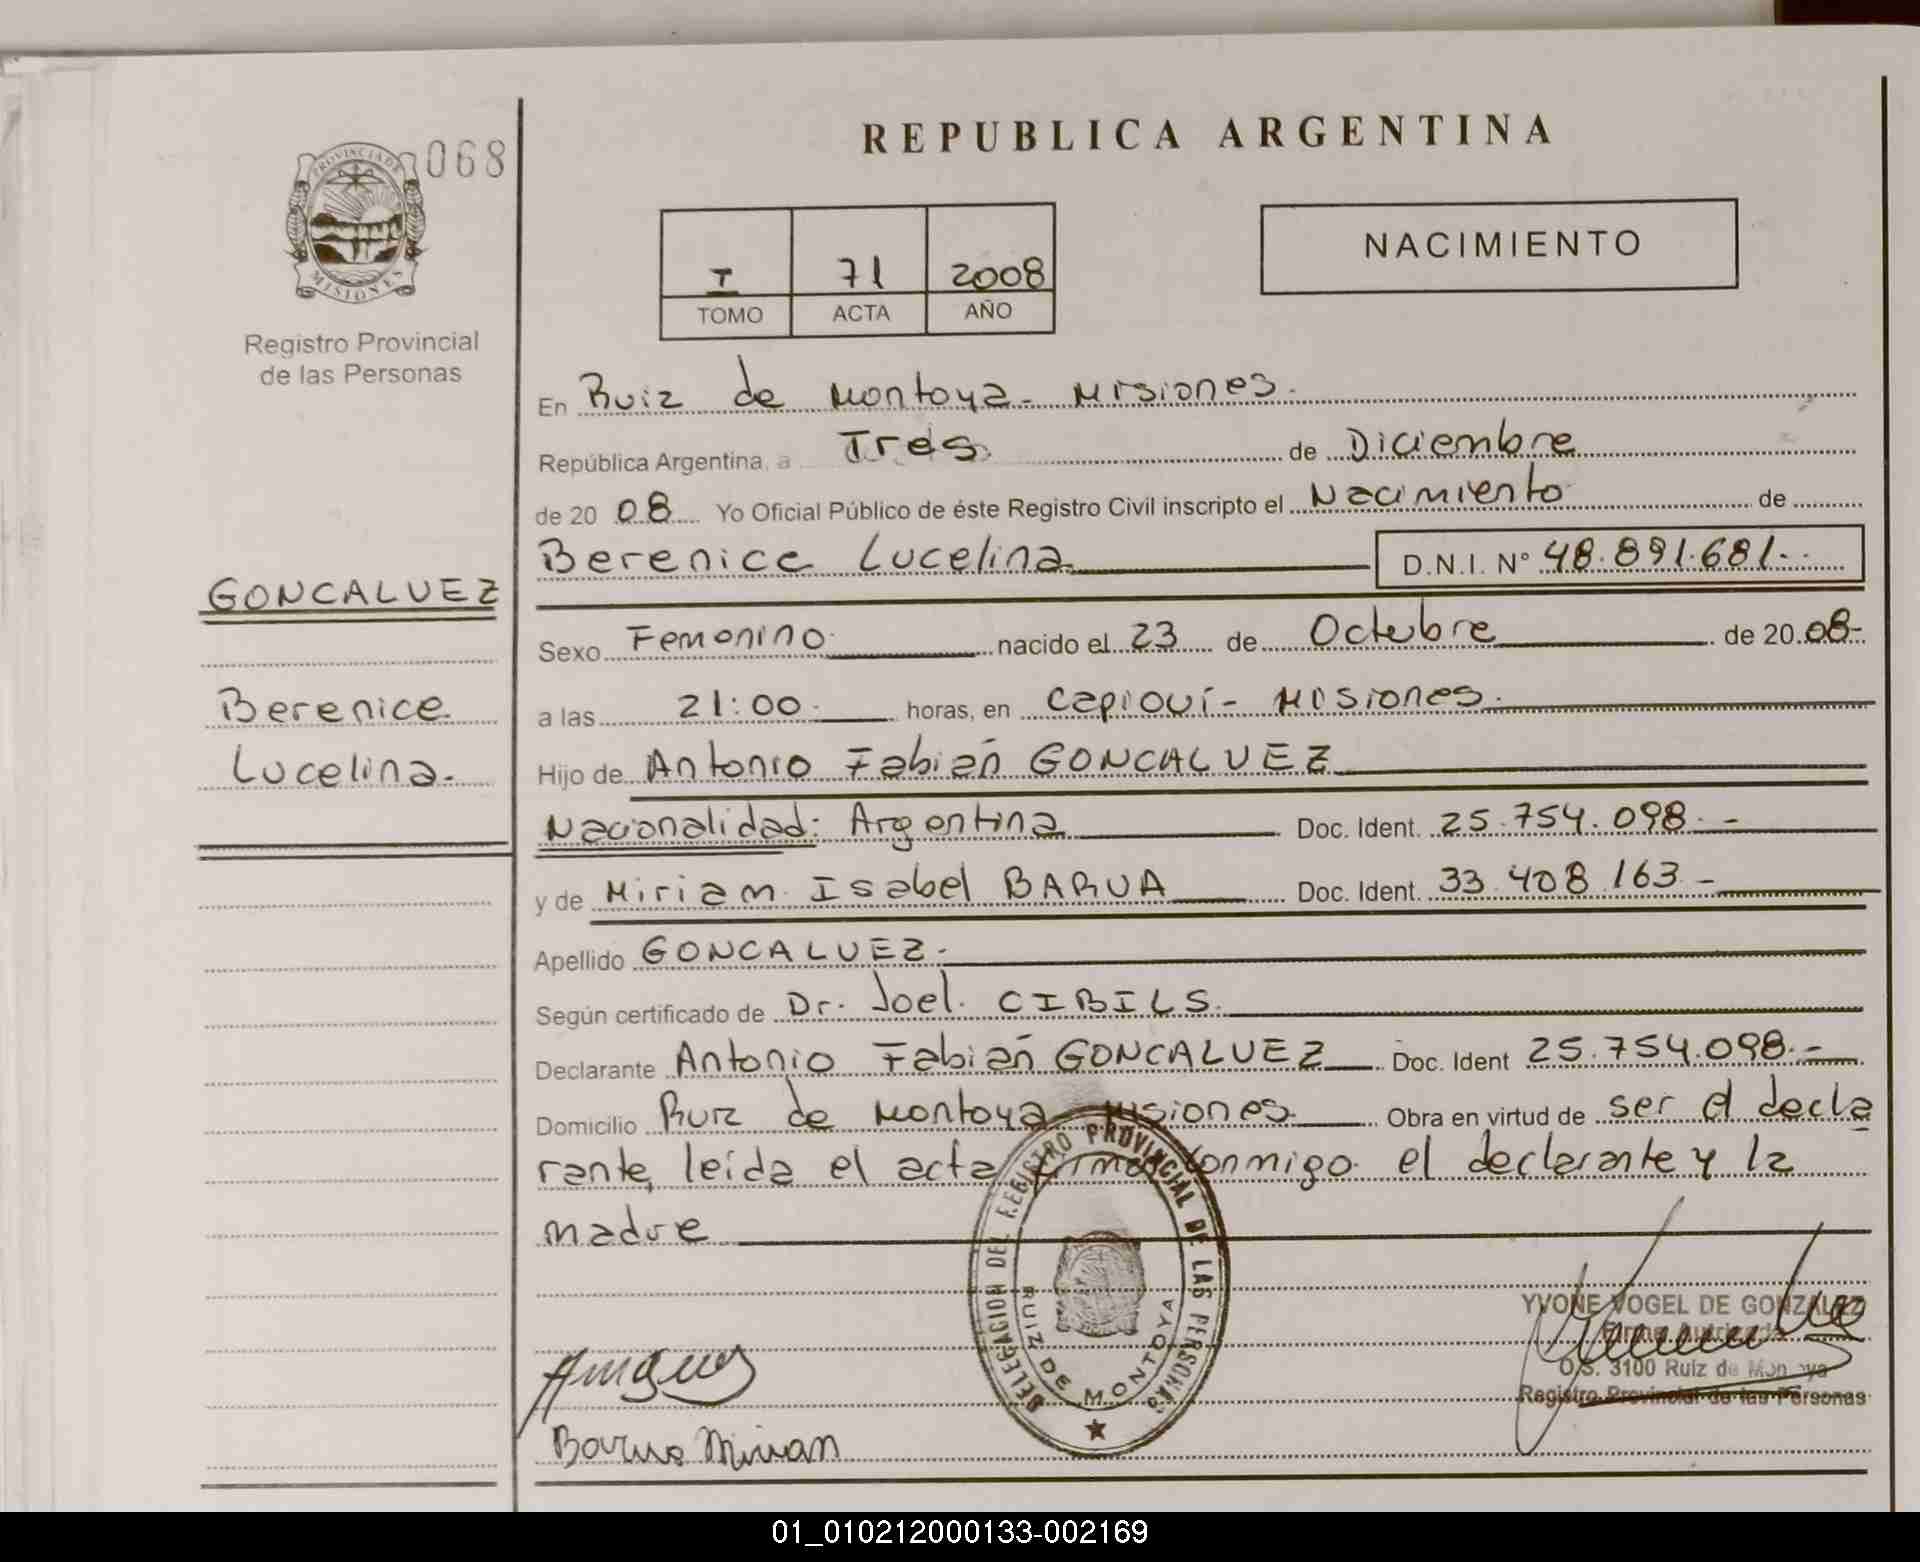 068
PROVINCIA DE
MISIONES
Registro Provincial
de las Personas
GONCALVEZ
Berenice
Lucelina.
REPUBLICA ARGENTINA
I 71 2008
TOMO ACTA AÑO
NACIMIENTO
En Ruiz de Montoya - Misiones.
República Argentina, a Tres de Diciembre
de 20 08 Yo Oficial Público de éste Registro Civil inscripto el Nacimiento de
Berenice Lucelina D.N.I. N° 48.891.681.-
Sexo Femenino nacido el 23 de Octubre de 20 08-
a las 21:00 horas, en Capioví - Misiones.
Hijo de Antonio Fabián GONCALVEZ
Nacionalidad: Argentina Doc. Ident. 25.754.098.-
y de Miriam Isabel BARUA Doc. Ident. 33.408.163-
Apellido GONCALVEZ.
Según certificado de Dr. Joel CIBILS.
Declarante Antonio Fabián GONCALVEZ Doc. Ident 25.754.098.-
Domicilio Ruiz de Montoya Misiones. Obra en virtud de ser el decla
rante, leida el acta firman conmigo el declarante y la
madre
DELEGACION DEL REGISTRO PROVINCIAL DE LAS PERSONAS
RUIZ DE MONTOYA
YVONE VOGEL DE GONZALEZ
Firma Autorizada
O.S. 3100 Ruiz de Montoya
Registro Provincial de las Personas
Barua Mirian
01_010212000133-002169